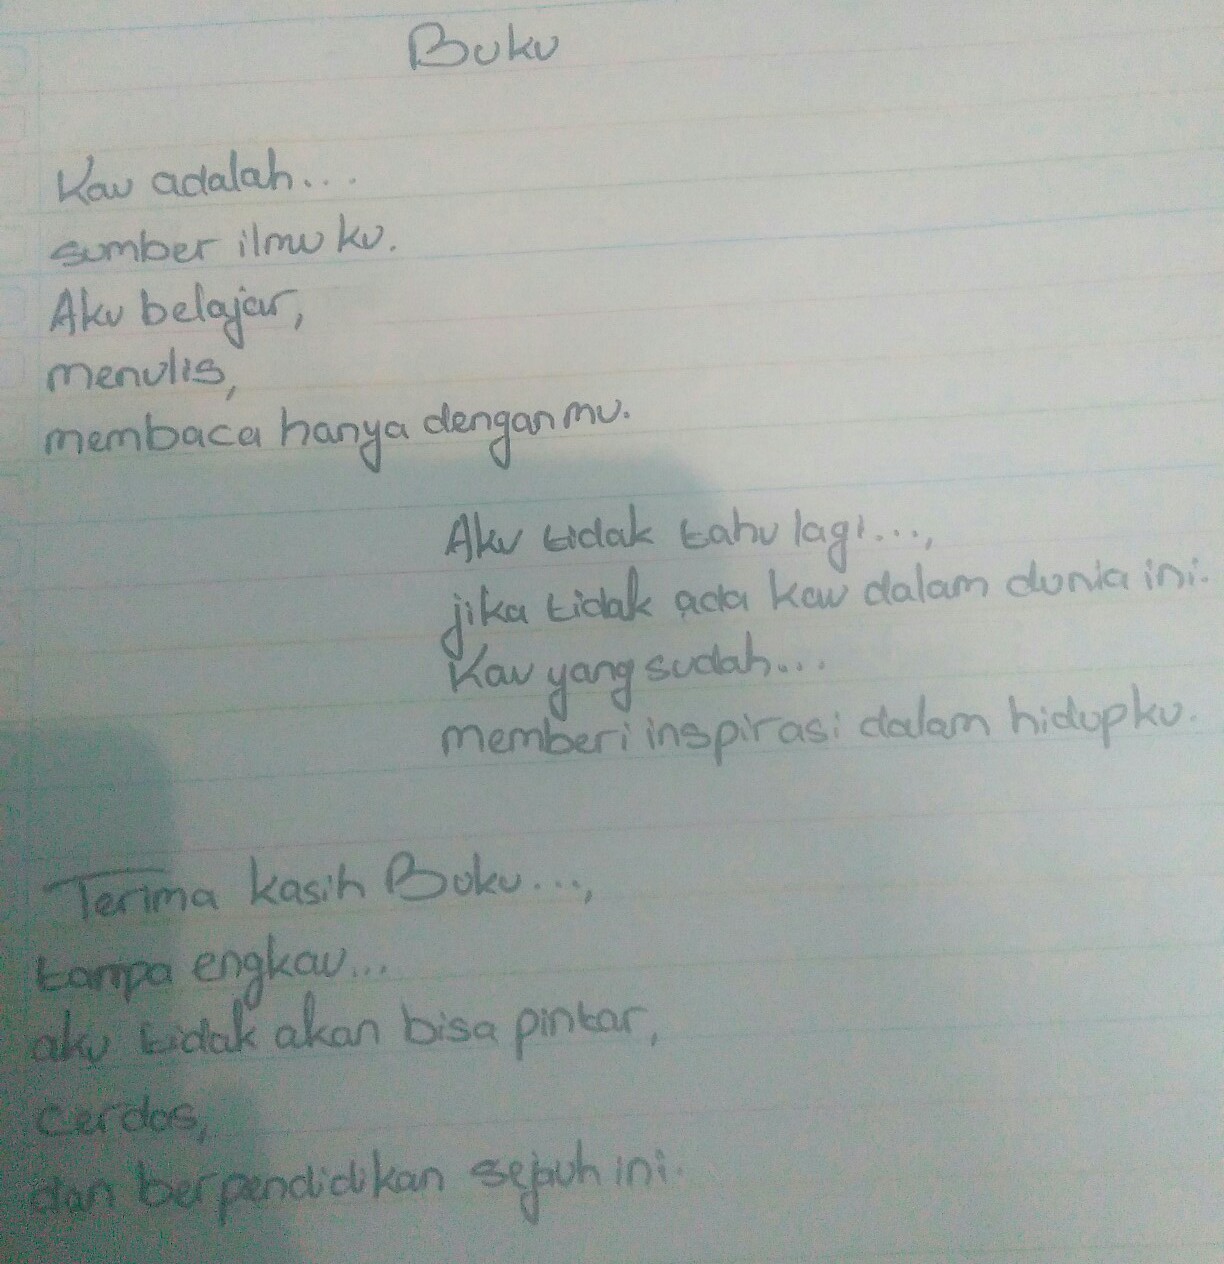 Buku
Kau adalah...
sumber ilmu ku.
Aku belajar,
menulis,
membaca hanya denganmu.
Aku tidak tahu lagi...,
jika tidak ada kau dalam dunia ini.
Kau yang sudah...
memberi inspirasi dalam hidupku.
Terima kasih Buku...,
tampa engkau...
aku tidak akan bisa pintar,
cerdas,
dan berpendidikan sejauh ini.